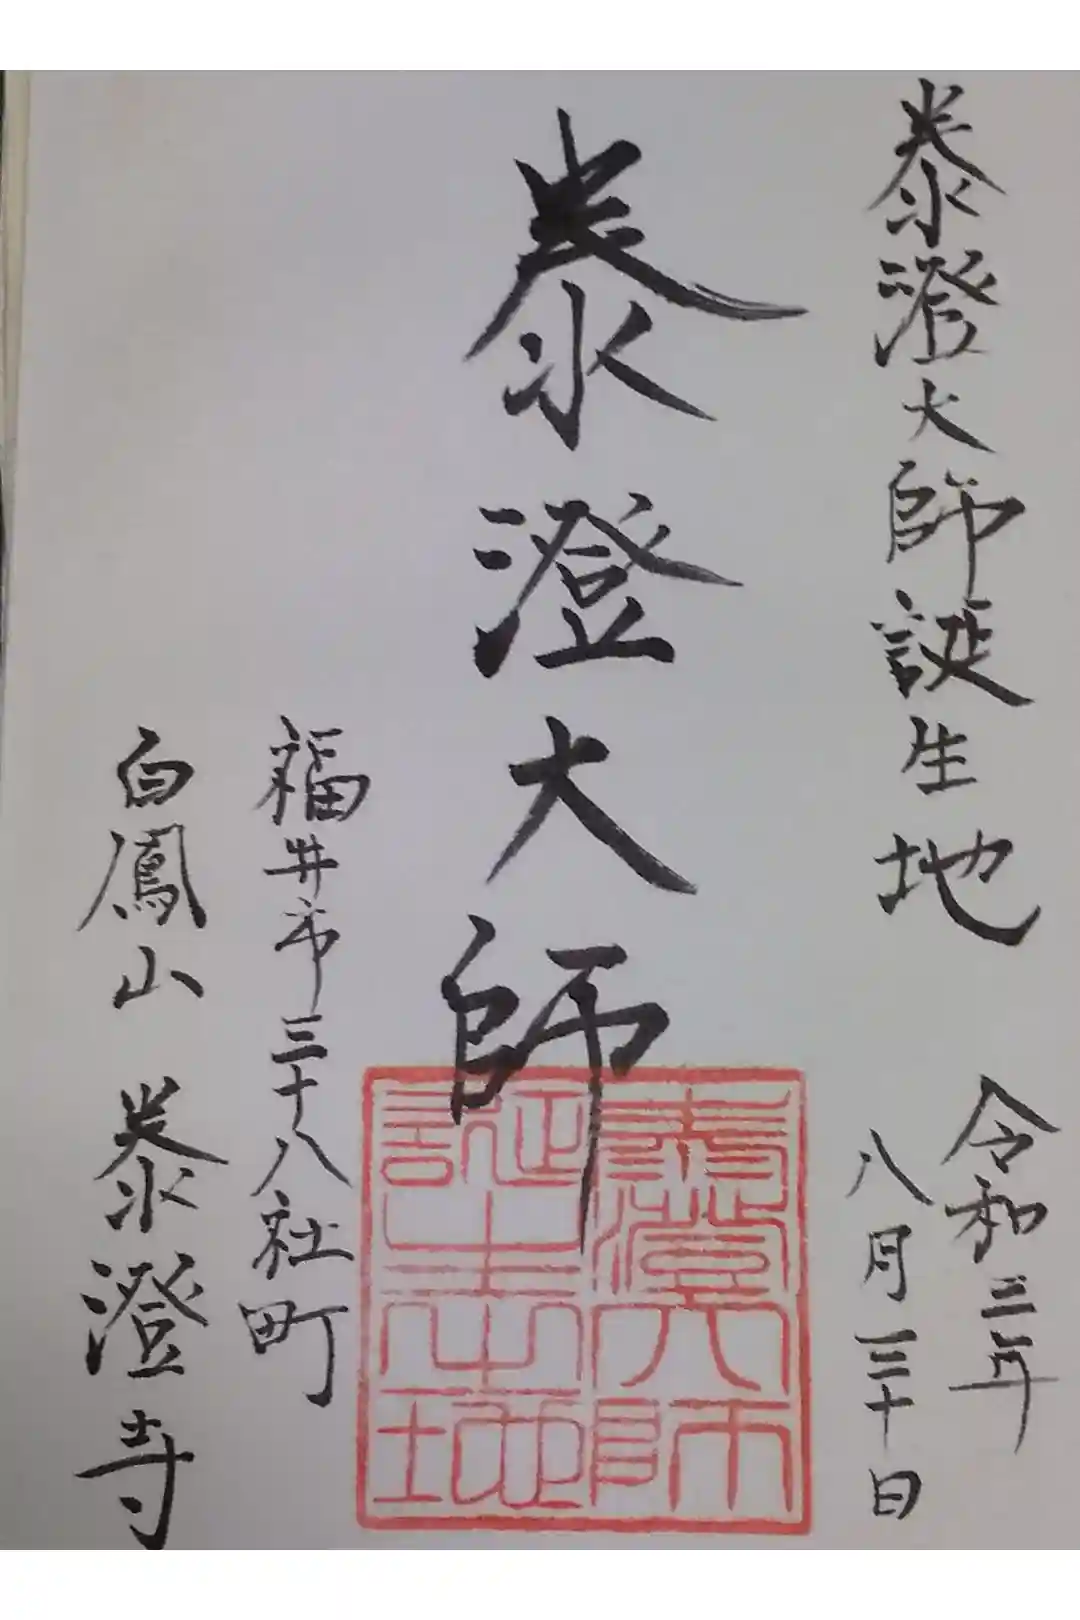 泰澄大師誕生地
令和三年
八月三十日
泰澄大師
泰澄大師
誕生地
福井市三十八社町
白鳳山 泰澄寺